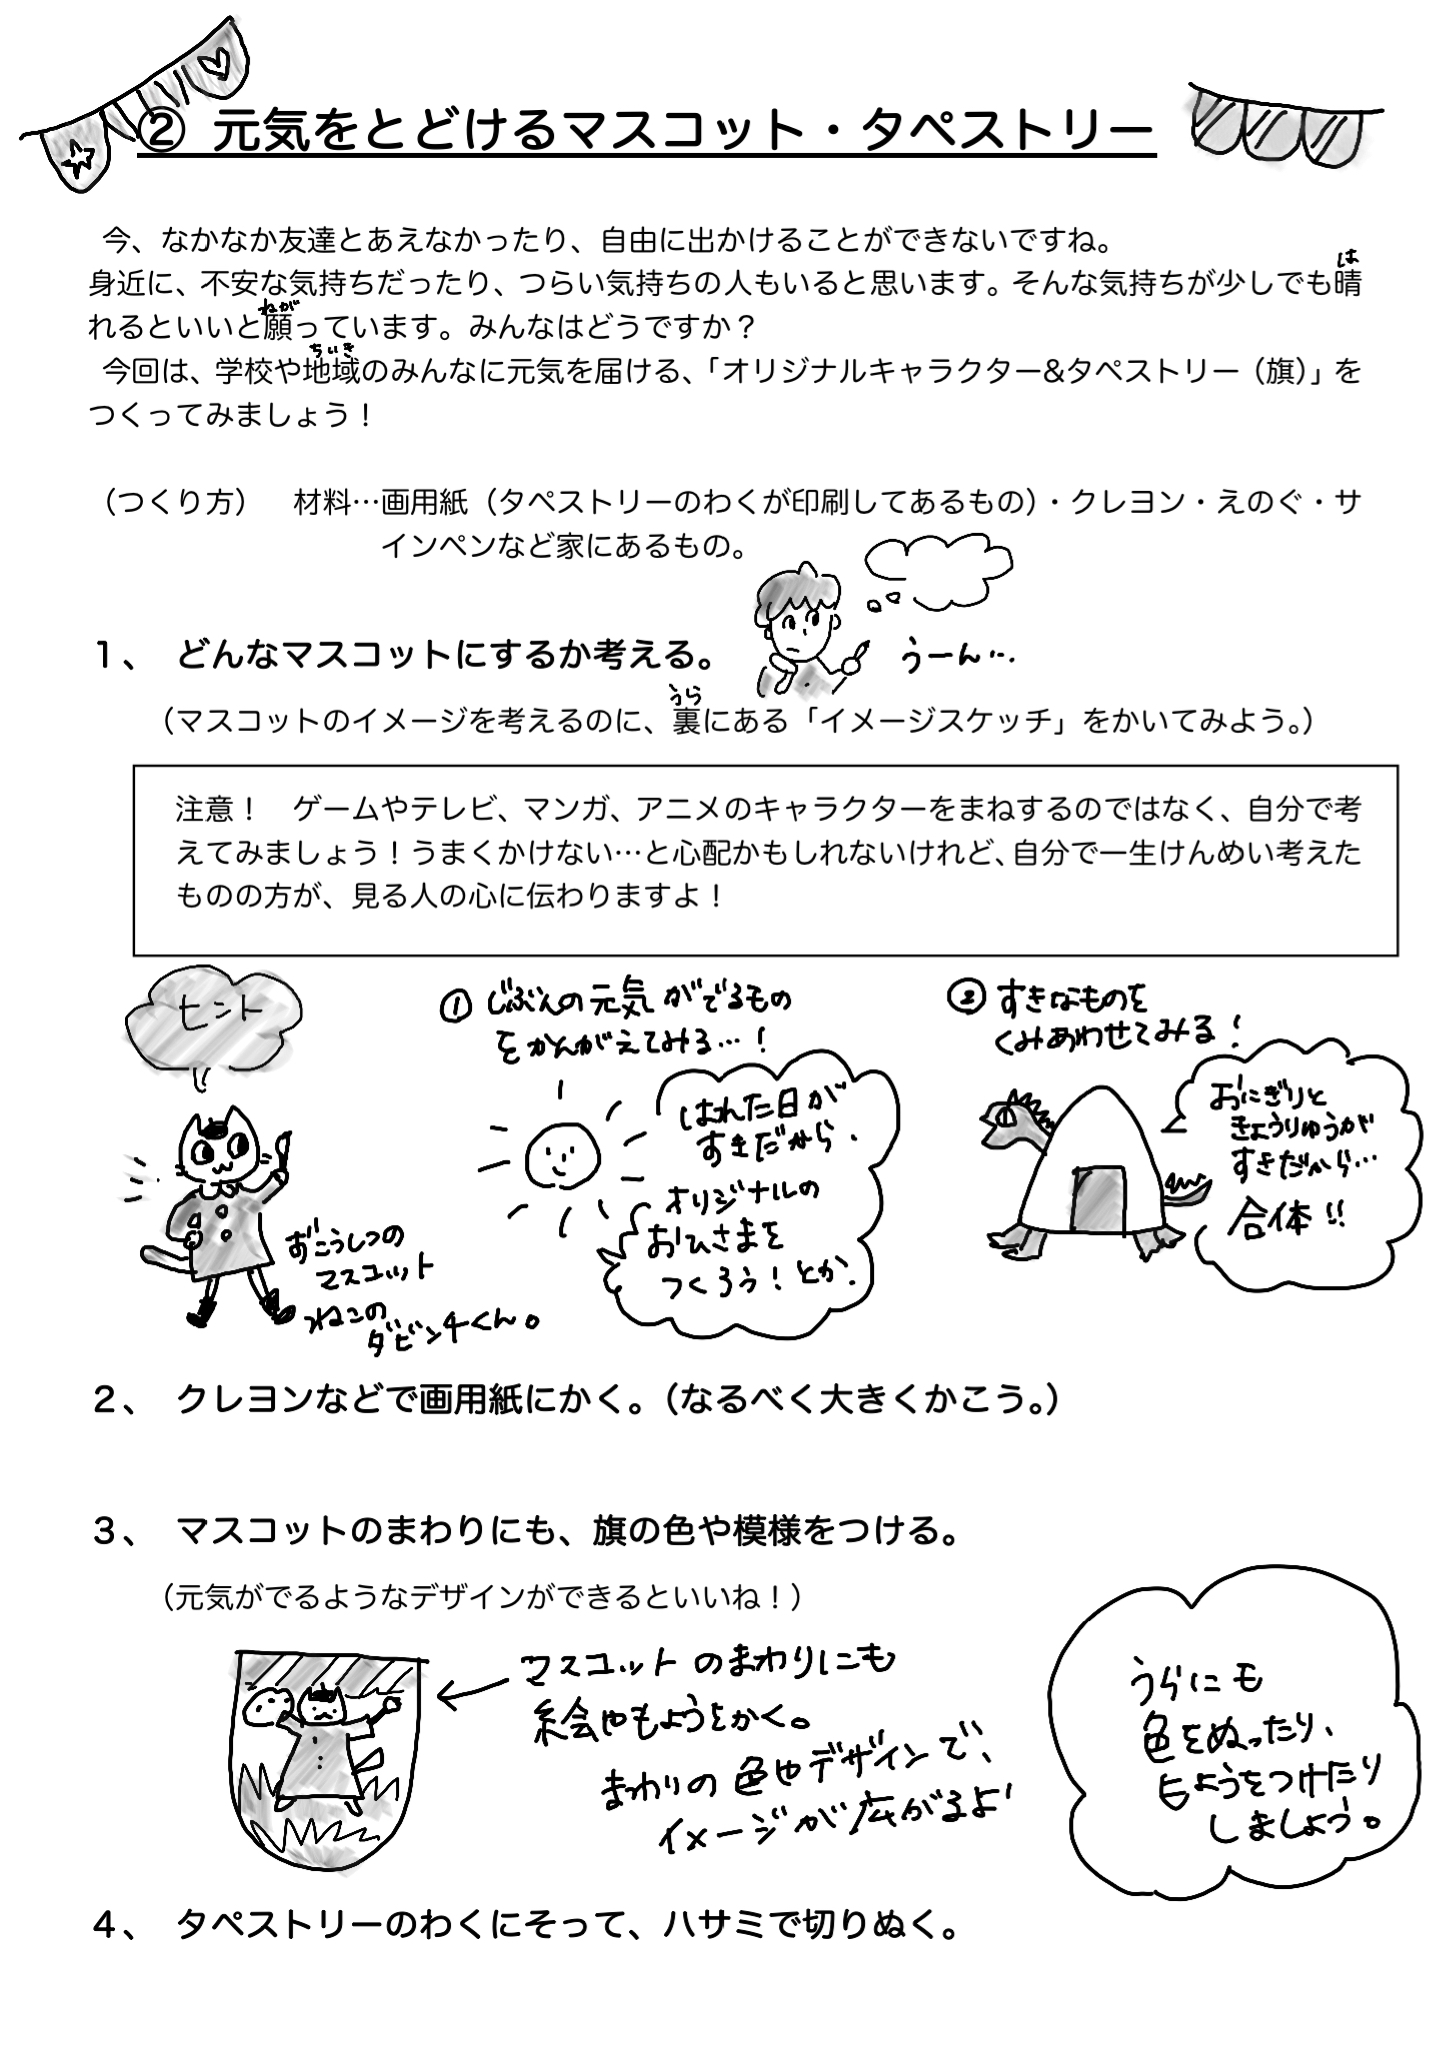 ② 元気をとどけるマスコット・タペストリー
今、なかなか友達とあえなかったり、自由に出かけることができないですね。
は
身近に、不安な気持ちだったり、つらい気持ちの人もいると思います。そんな気持ちが少しでも晴
ねが
れるといいと願っています。みんなはどうですか？
ちいき
今回は、学校や地域のみんなに元気を届ける、「オリジナルキャラクター&タペストリー（旗）」を
つくってみましょう！
（つくり方）　材料…画用紙（タペストリーのわくが印刷してあるもの）・クレヨン・えのぐ・サ
インペンなど家にあるもの。
１、　どんなマスコットにするか考える。
うーん…
うら
（マスコットのイメージを考えるのに、裏にある「イメージスケッチ」をかいてみよう。）
注意！　ゲームやテレビ、マンガ、アニメのキャラクターをまねするのではなく、自分で考
えてみましょう！うまくかけない…と心配かもしれないけれど、自分で一生けんめい考えた
ものの方が、見る人の心に伝わりますよ！
ヒント
ずこうしつの
マスコット
ねこの
ダビンチくん。
① じぶんの元気がでるもの
をかんがえてみる…！
はれた日が
すきだから.
オリジナルの
おひさまを
つくろう！とか.
② すきなものを
くみあわせてみる！
おにぎりと
きょうりゅうが
すきだから…
合体!!
２、　クレヨンなどで画用紙にかく。（なるべく大きくかこう。）
３、　マスコットのまわりにも、旗の色や模様をつける。
（元気がでるようなデザインができるといいね！）
マスコットのまわりにも
絵やもようをかく。
まわりの色やデザインで、
イメージが広がるよ!
うらにも
色をぬったり、
もようをつけたり
しましょう。
４、　タペストリーのわくにそって、ハサミで切りぬく。